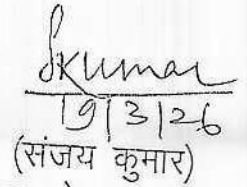 Skumar
19/3/26
(संजय कुमार)